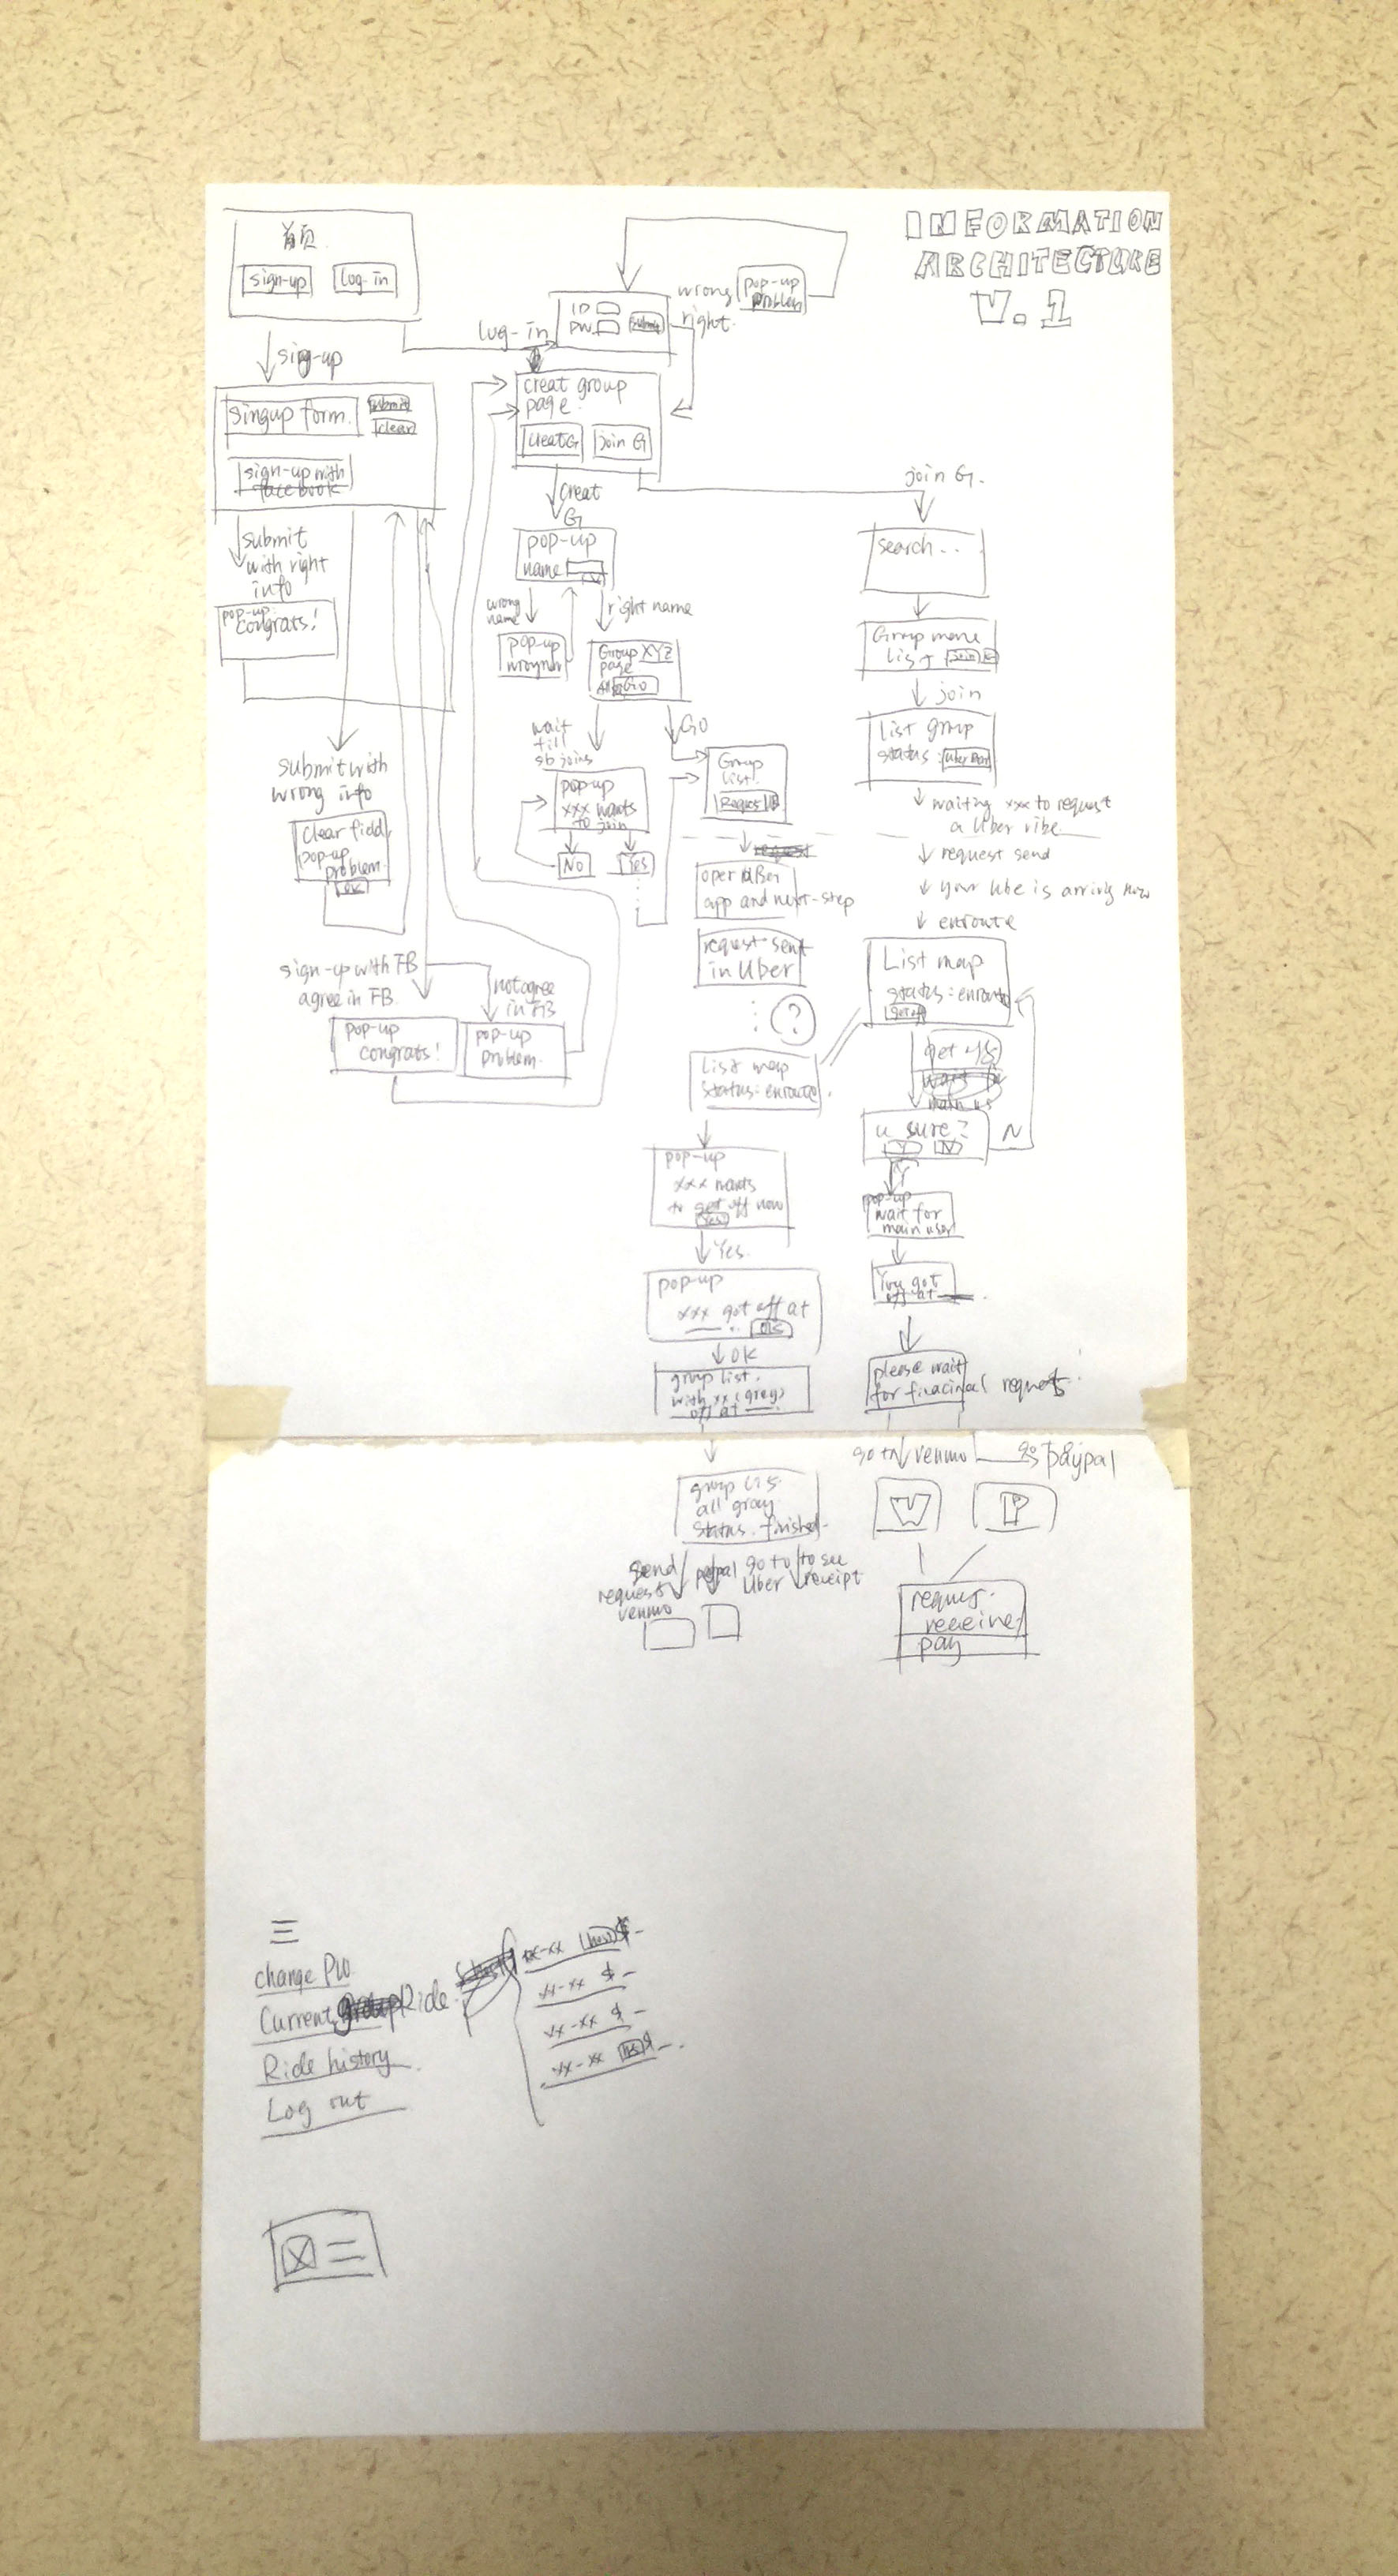 INFORMATION
ARCHITECTURE
V.1
首页
sign-up
log-in
sign-up
singup form.
submit
clear
sign-up with
facebook
submit
with right
info
pop-up:
congrats!
submit with
wrong info
clear field
pop-up
problem.
OK
sign-up with FB
agree in FB.
not agree
in FB
pop-up
congrats!
pop-up
problem.
log-in
ID
PW
submit
wrong
right.
pop-up
problem
creat group
page.
creatG
join G
creat
G
pop-up
name
wrong
name
right name
pop-up
Group XYZ
page
Go
wait
till
sb joins
Go
pop-up
xxx wants
to join
No
Yes
Group
list.
open Uber
app and next-step
request sent
in Uber
?
List map
status: enroute
pop-up
xxx wants
to get off now
Yes
Yes.
pop-up
xxx got off at
OK
group list.
with xx (grey)
off at
group list.
all gray
status. finished
send
request
venmo
paypal
go to
Uber
to see
receipt
join G.
search...
Group
list
join
List group
status:
waiting xxx to request
a Uber ribe
request send
your Ube is arriving now
enroute
List map
status: enroute
get off
u sure?
Y
N
N
Y
pop-up
wait for
main user
You got
off at
please wait
for finacinal request
go to venmo
paypal
V
P
receive
pay
三
change PW
Current Ride
Ride history
Log out
xx-xx
$-
xx-xx $-
xx-xx $-
xx-xx